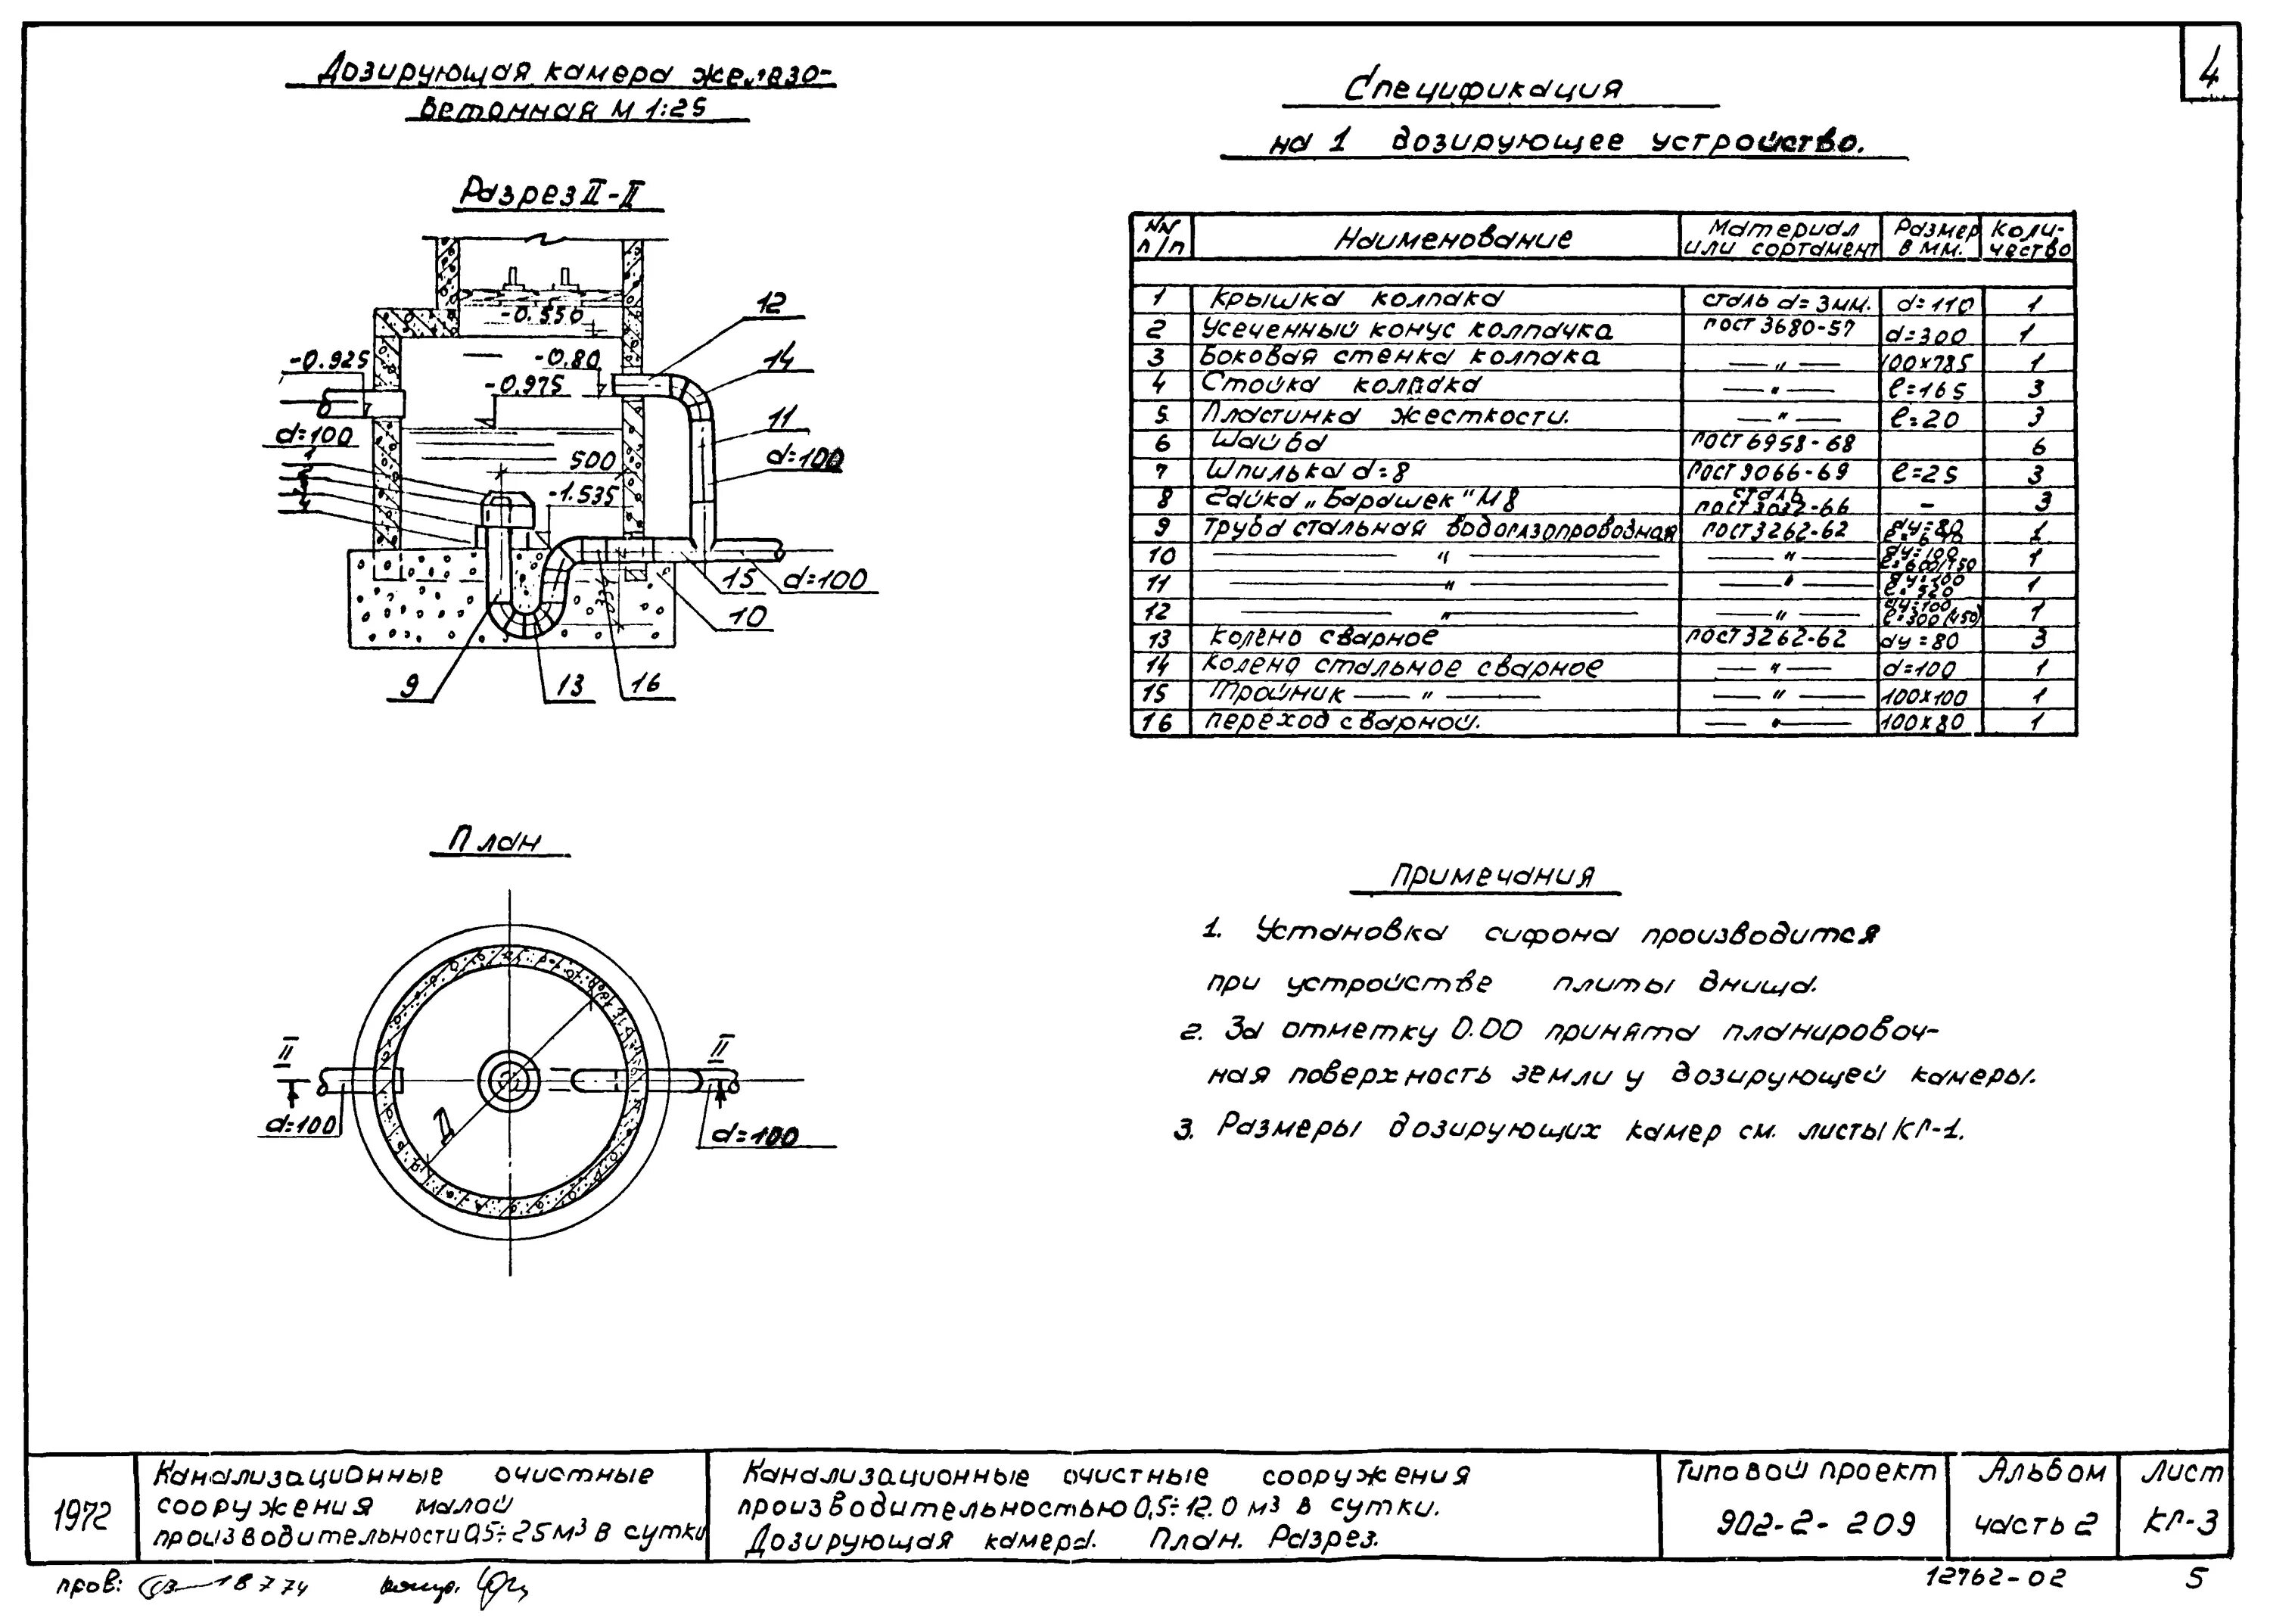 4
Дозирующая камера железо-
бетонная М 1:25
Разрез II-II
-0.550
-0.925
-0.80
-0.975
12
14
11
d=100
d=100
1
2
3
4
500
-1.535
15
d=100
10
9
13
16
План
II
II
Д
d=100
d=100
Спецификация
на 1 дозирующее устройство.
NN п/п Наименование Материал или сортамент Размер в мм. Коли-чество
1 Крышка колпака сталь d=3мм. d=110 1
2 Усеченный конус колпачка ГОСТ 3680-57 d=300 1
3 Боковая стенка колпака —„— 100х785 1
4 Стойка колпака —„— ℓ=165 3
5 Пластинка жесткости. —„— ℓ=20 3
6 Шайба ГОСТ 6958-68 6
7 Шпилька d=8 ГОСТ 9066-69 ℓ=25 3
8 Гайка „Барашек" М8 сталь ГОСТ 3032-66 - 3
9 Труба стальная водогазопроводная ГОСТ 3262-62 dу=80 1
10 —„— —„— dу=100 ℓ=600/750 1
11 —„— —„— dу=100 ℓ=520 1
12 —„— —„— dу=100 ℓ=300(450) 1
13 Колено сварное ГОСТ 3262-62 dу=80 3
14 Колено стальное сварное —„— d=100 1
15 Тройник —„— —„— 100х100 1
16 переход сварной. —„— 100х80 1
Примечания
1. Установка сифона производится
при устройстве плиты днища.
2. За отметку 0.00 принята планировоч-
ная поверхность земли у дозирующей камеры.
3. Размеры дозирующих камер см. листы КГ-1.
1972
Канализационные очистные
сооружения малой
производительности 0,5÷25м³ в сутки
Канализационные очистные сооружения
производительностью 0,5÷12.0 м³ в сутки.
Дозирующая камера. План. Разрез.
Типовой проект
902-2-209
Альбом
часть 2
Лист
КГ-3
пров: 18 7 74
12762-02 5